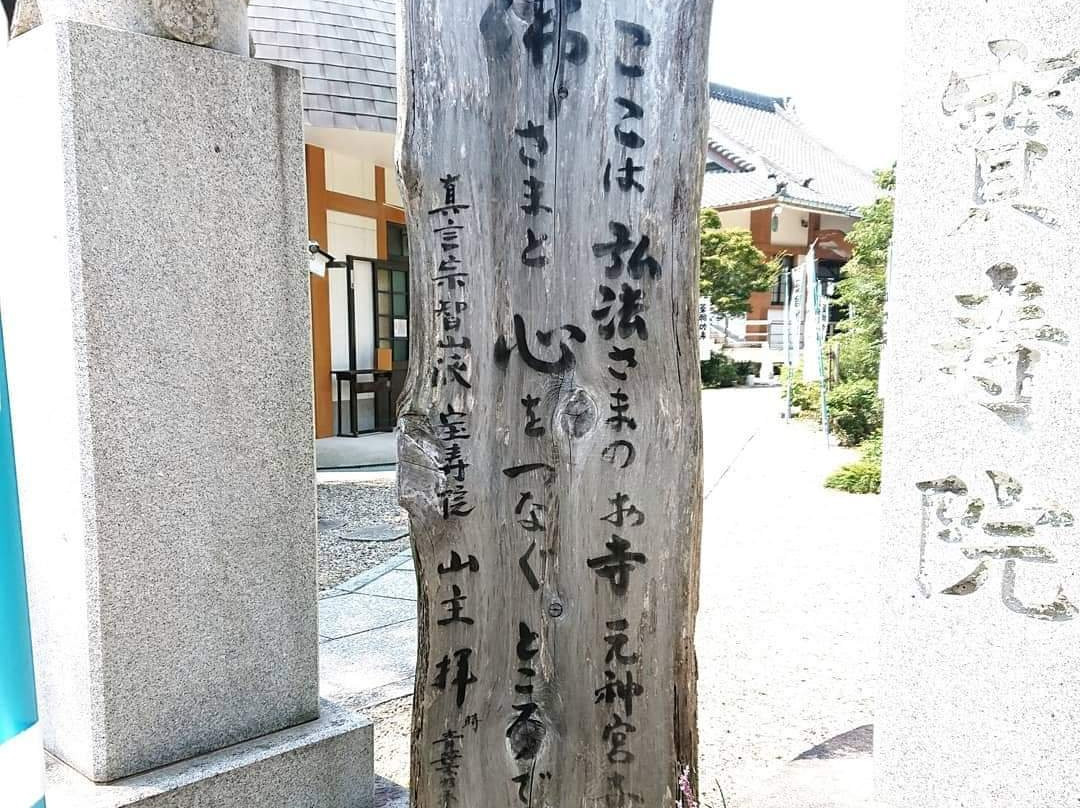 ここは弘法さまのお寺 元神宮寺
佛さまと心をつなぐところで
真言宗智山派 宝寿院 山主 拝
時 青葉
寳寺院